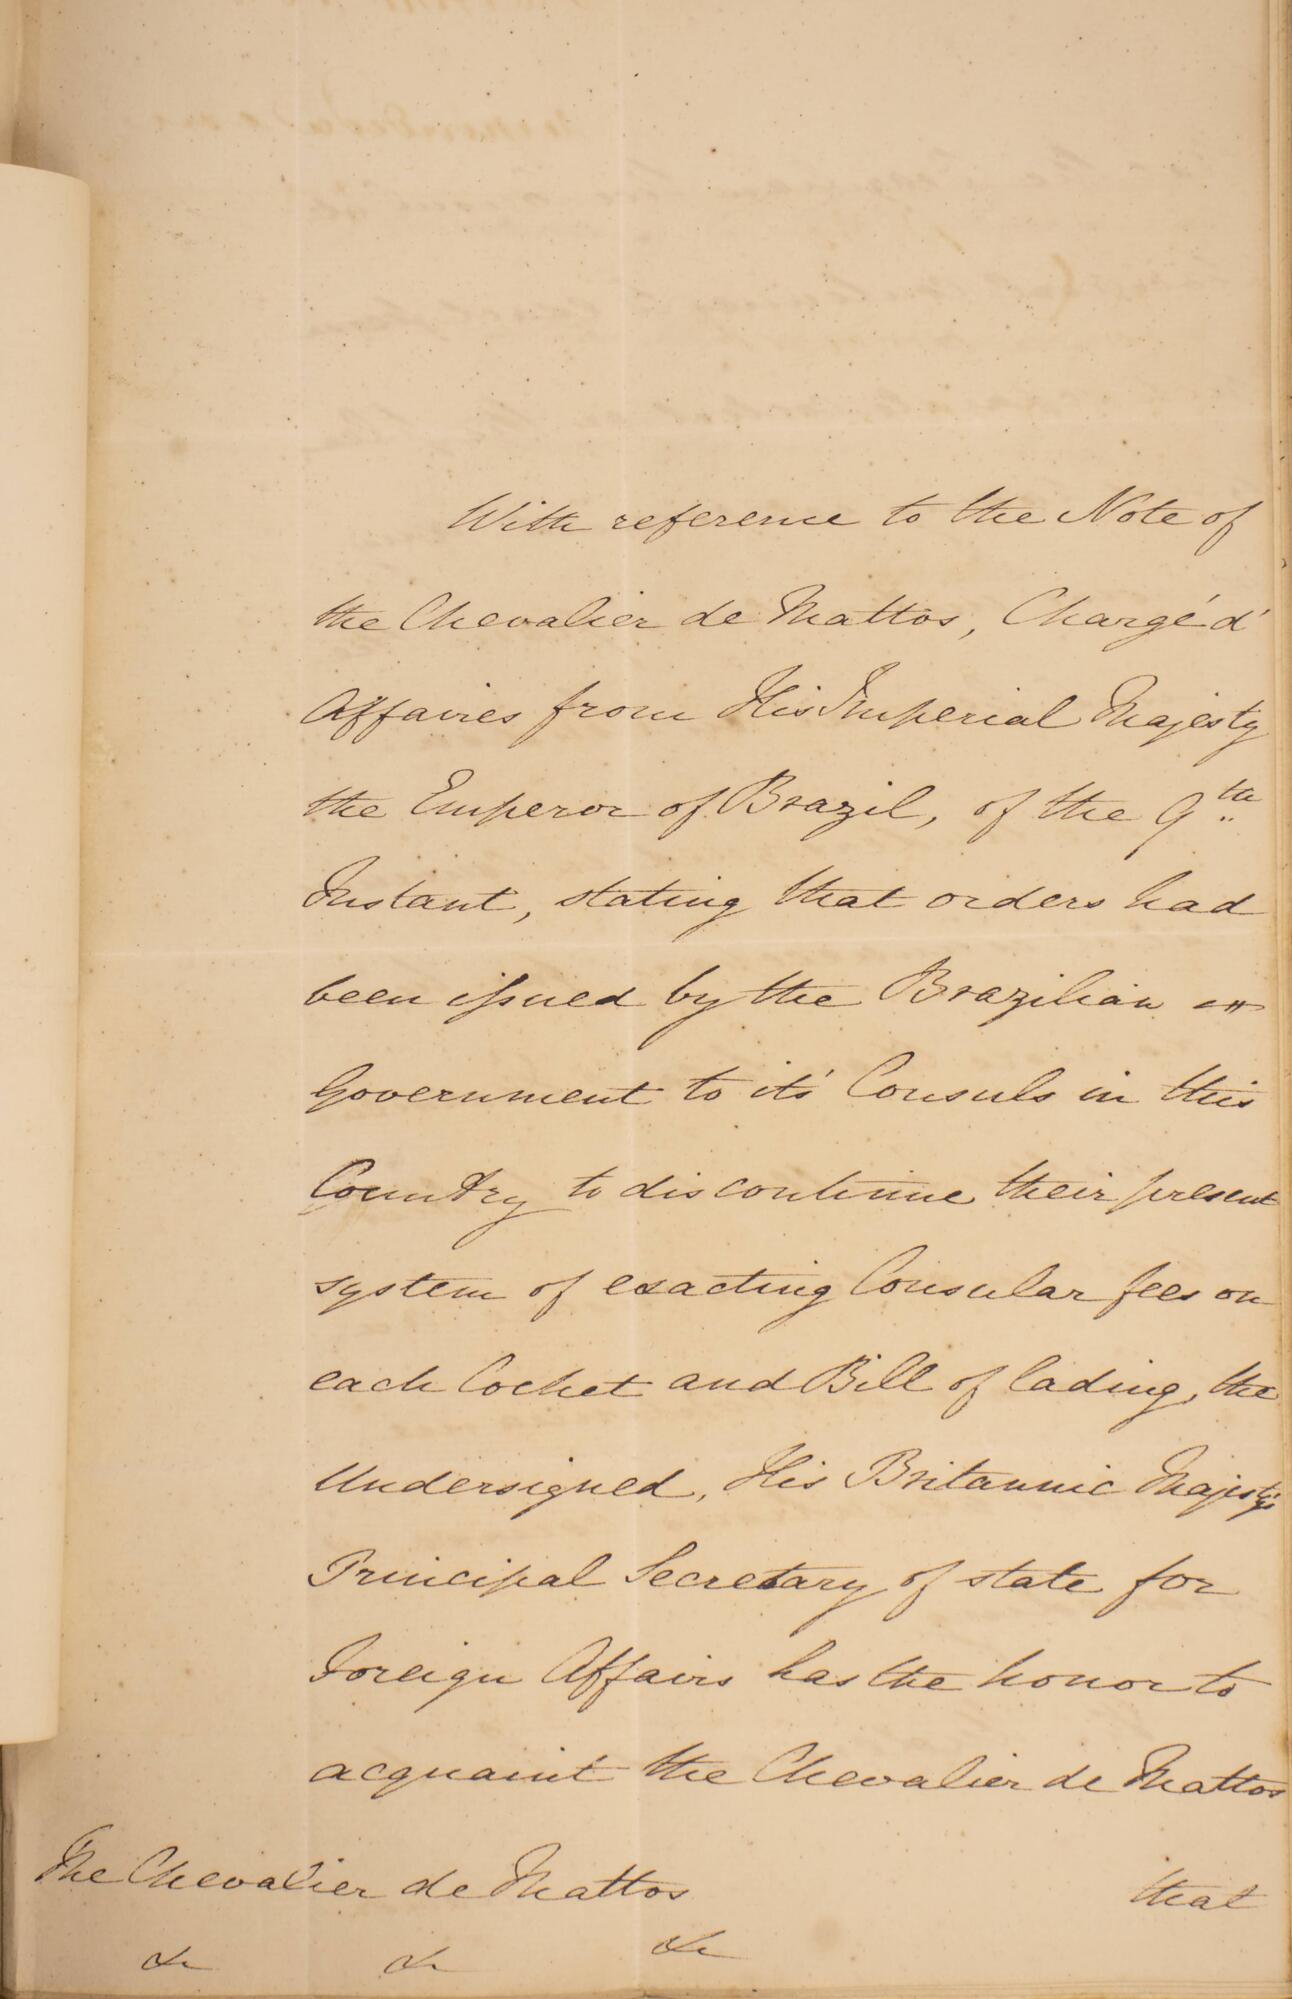 With reference to the Note of
the Chevalier de Mattos, Chargé d'
Affaires from His Imperial Majesty
the Emperor of Brazil, of the 9th
Instant, stating that orders had
been issued by the Brazilian
Government to it's Consuls in this
Country to discontinue their present
system of exacting Consular fees on
each Cocket and Bill of lading, the
Undersigned, His Britannic Majesty's
Principal Secretary of state for
Foreign Affairs has the honor to
acquaint the Chevalier de Mattos
that
The Chevalier de Mattos
&c &c &c